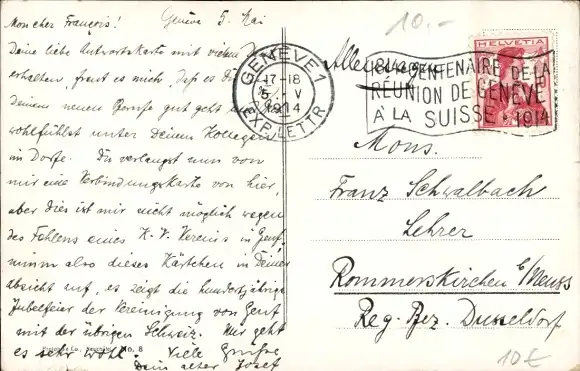 Mon cher François! Genève 5. Mai
Deine liebe Antwortskarte mit vielem
erhalten, freut es mich, daß es Dir
Deinem neuen Berufe gut geht
wohlfühlst unter Deinen Kollegen
im Dorfe. Du verlangst nun von
mir eine Verbindungskarte von hier,
aber dies ist mir nicht möglich wegen
des Fehlens eines K.V. Vereins in Genf,
nimm also dieses Kärtchen in Deine
absicht auf, es zeigt die hundertjährige
Jubelfeier der Vereinigung von Genf
mit der übrigen Schweiz. Mir geht
es sehr wohl. Viele Grüße
Dein alter Josef
No. 8
10.-
GENÈVE 1
17-18
5. V
1914
EXP. LETTR
HELVETIA
1814 CENTENAIRE DE LA
RÉUNION DE GENÈVE
À LA SUISSE 1914
Allemagne
Mons.
Franz Schwalbach
Lehrer
Rommerskirchen b/Neuss
Reg. Bez. Dusseldorf
10€